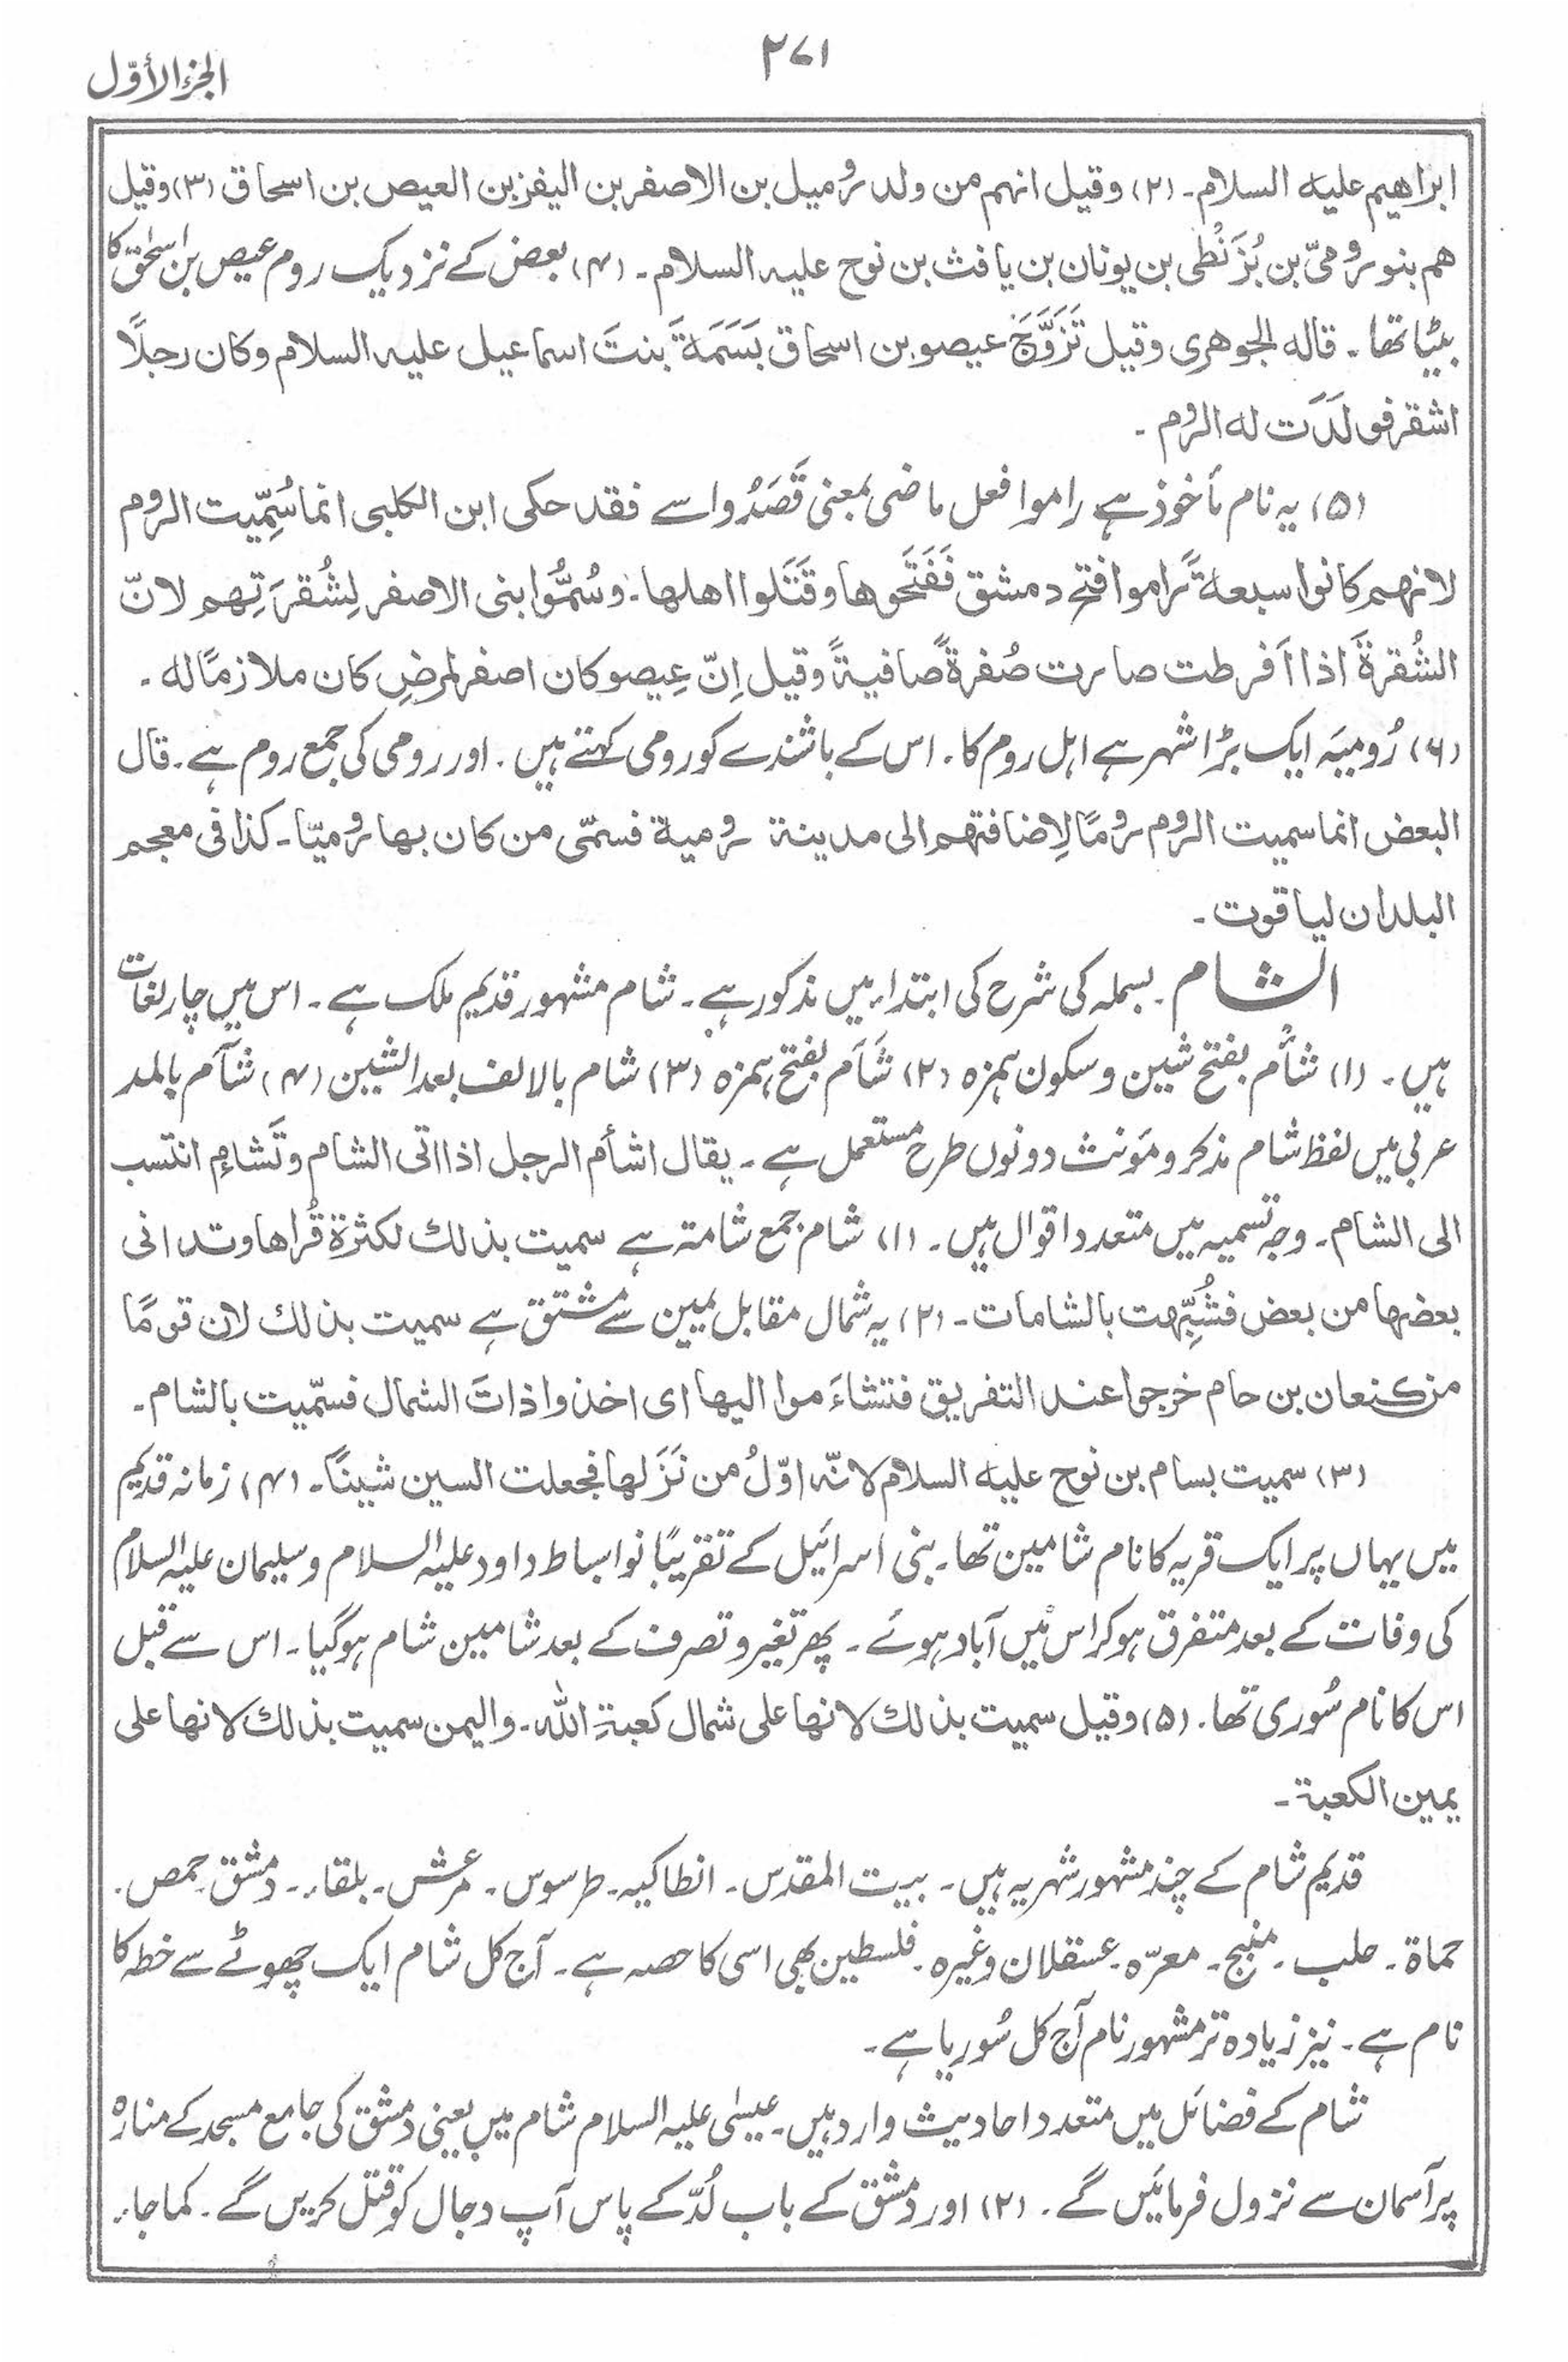 ۲۷۱
الجزء الأوّل
ابراهيم عليه السلام۔ (۲) وقيل انهم من ولد روميل بن الاصفر بن اليفز بن العيص بن اسحاق (۳) وقيل
هم بنو رومیّ بن بُزَنْطی بن یونان بن یافث بن نوح علیہ السلام۔ (۴) بعض کے نزدیک روم عیص بن اسحٰق کا
بیٹا تھا۔ قالہ الجوھری وقیل تَزَوَّجَ عیصو بن اسحاق بَسَمَةَ بنتَ اسماعیل علیہ السلام وکان رجلًا
اشقر فولَدَت له الروم۔
(۵) یہ نام مأخوذ ہے راموا فعل ماضی بمعنی قَصَدُوا سے فقد حکی ابن الکلبی انما سُمِّیت الروم
لانهم کانوا سبعةً راموا فتح دمشق فَفَتَحوها وقَتَلوا اهلها۔ وسُمُّوا بنی الاصفر لِشُقرَتِهم لانّ
الشُقرةَ اذا اَفرطت صارت صُفرةً صافیةً وقیل اِنّ عِیصو کان اصفر لمرضٍ کان ملازمًا له۔
(۶) رُومیَہ ایک بڑا شہر ہے اہل روم کا۔ اس کے باشندے کو رومی کہتے ہیں۔ اور رومی کی جمع روم ہے۔ قال
البعض انما سمیت الروم رومًا لِاضافتهم الی مدینة رومیة فسمّی من کان بها رومیًّا۔ کذا فی معجم
البلدان لیاقوت۔
الشام۔ بسملہ کی شرح کی ابتداء میں مذکور ہے۔ شام مشہور قدیم ملک ہے۔ اس میں چار لغات
ہیں۔ (۱) شَأْم بفتح شین وسکون ہمزہ (۲) شَأَم بفتح ہمزہ (۳) شام بالالف بعد الشین (۴) شآم بالمد
عربی میں لفظ شام مذکر و مؤنث دونوں طرح مستعمل ہے۔ یقال اشأم الرجل اذا اتی الشام وتَشاءم انتسب
الی الشام۔ وجہ تسمیہ میں متعدد اقوال ہیں۔ (۱) شام جمع شامة ہے سمیت بذلك لکثرة قُراها وتدانی
بعضها من بعض فشُبِّهت بالشامات۔ (۲) یہ شمال مقابل یمین سے مشتق ہے سمیت بذلك لان قومًا
من کنعان بن حام خرجوا عند التفریق فتشاءَموا الیها ای اخذوا ذاتَ الشمال فسمّیت بالشام۔
(۳) سمیت بسام بن نوح علیه السلام لانّه اوّلُ من نَزَلها فجعلت السین شینًا۔ (۴) زمانہ قدیم
میں یہاں پر ایک قریہ کا نام شامین تھا۔ بنی اسرائیل کے تقریبًا نو اسباط داود علیہ السلام و سلیمان علیہ السلام
کی وفات کے بعد متفرق ہو کر اس میں آباد ہوئے۔ پھر تغیر و تصرف کے بعد شامین شام ہو گیا۔ اس سے قبل
اس کا نام سُوری تھا۔ (۵) وقیل سمیت بذلك لانها علی شمال کعبة اللہ۔ والیمن سمیت بذلك لانها علی
یمین الکعبة۔
قدیم شام کے چند مشہور شہر یہ ہیں۔ بیت المقدس۔ انطاکیہ۔ طرسوس۔ مرعش۔ بلقاء۔ دمشق۔ حمص۔
حماة۔ حلب۔ منبج۔ معرّہ۔ عسقلان وغیرہ۔ فلسطین بھی اسی کا حصہ ہے۔ آج کل شام ایک چھوٹے سے خطہ کا
نام ہے۔ نیز زیادہ تر مشہور نام آج کل سُوریا ہے۔
شام کے فضائل میں متعدد احادیث وارد ہیں۔ عیسٰی علیہ السلام شام میں یعنی دمشق کی جامع مسجد کے منارہ
پر آسمان سے نزول فرمائیں گے۔ (۲) اور دمشق کے باب لُدّ کے پاس آپ دجال کو قتل کریں گے۔ کما جاء